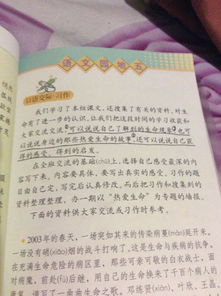 语文园地五
口语交际·习作
我们学习了本组课文,还搜集了有关的资料,对生
命有了进一步的认识。让我们把这段时间的学习收获和
大家交流交流。可以说说自己了解到的生命现象,也可
以说说身边的那些热爱生命的故事,还可以说说自己获
得的感受、得到的启发。
在全班交流的基础上,选择自己感受最深的内
容写下来。内容要具体,要写出真实的感受,习作的题
目由自己定,写完后认真修改。而后把习作和搜集到的
资料整理整理,办一期以“热爱生命”为专题的墙报。
下面的资料供大家交流或习作时参考。
2003年的春天,一场突如其来的传染病蔓(màn)延开来,
一场没有硝(xiāo)烟的战斗打响了。这是生命与疾病的抗争,
在充满生命危险的病区里,那些可亲可敬的白衣战士,面
对病魔,前赴(fù)后继,用自己的生命换来了千百个病人的